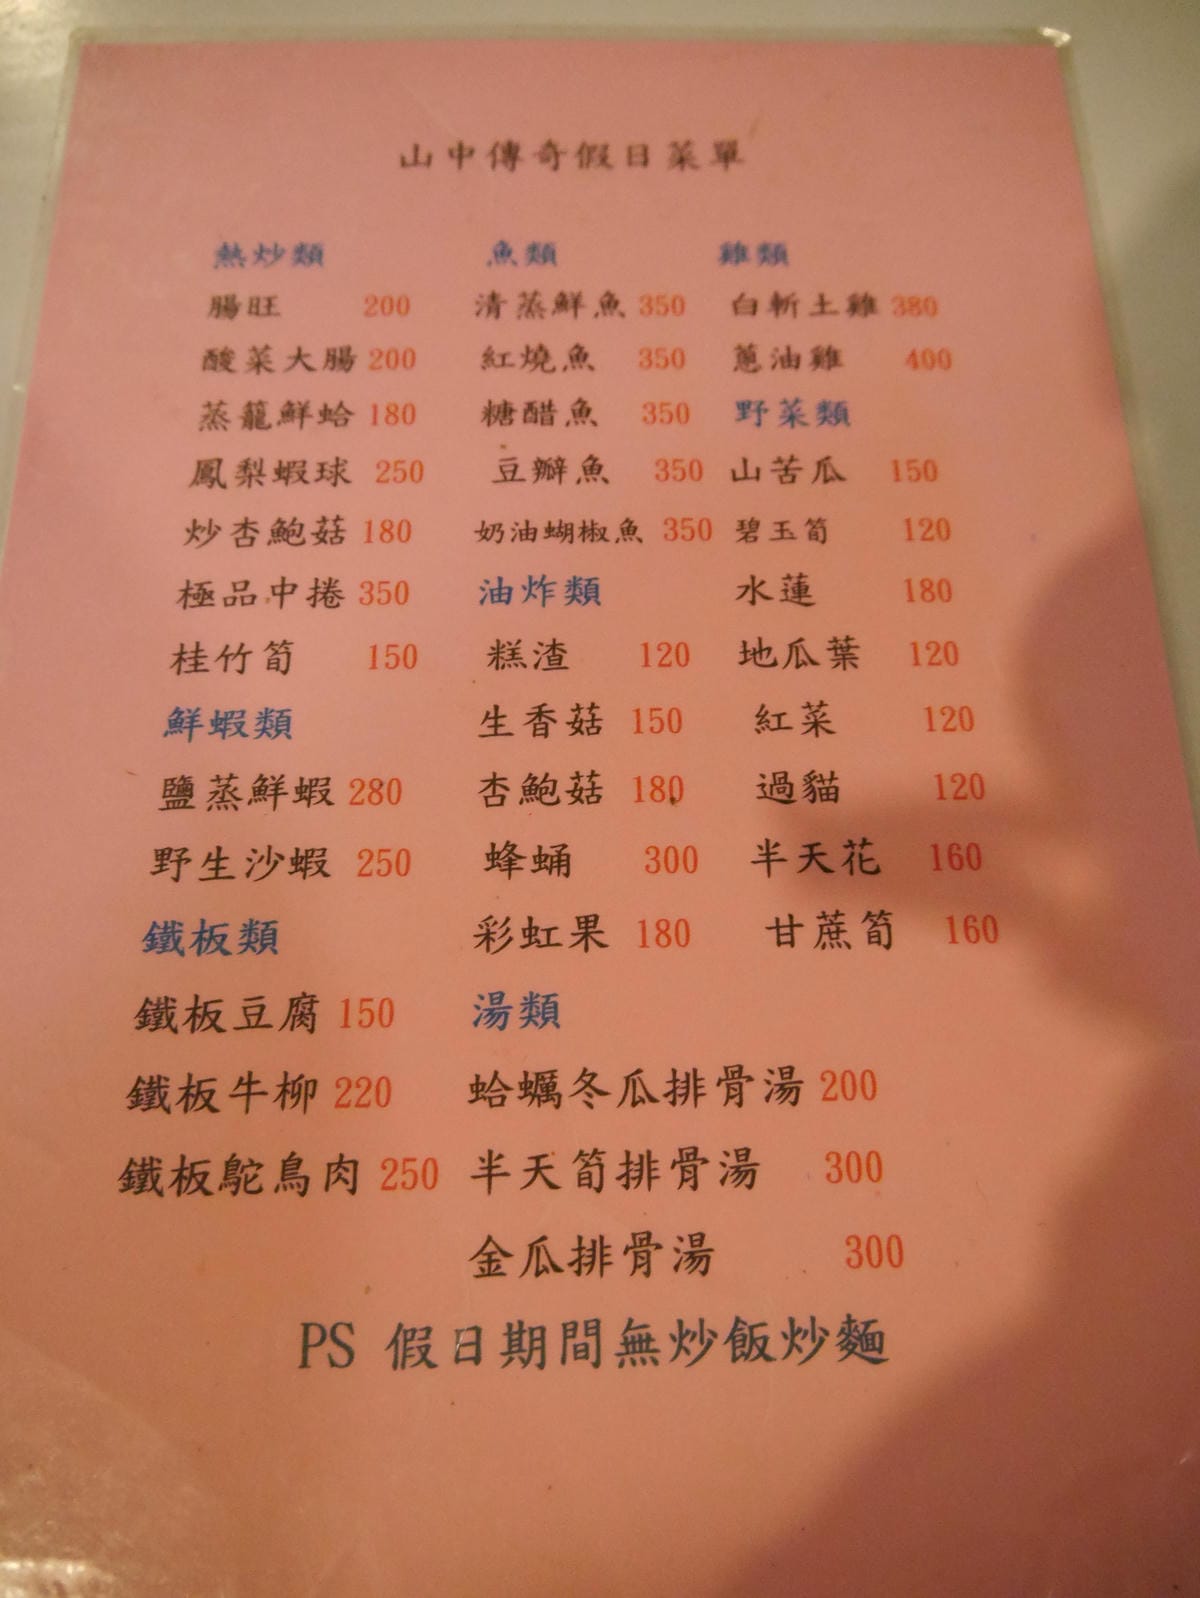 山中傳奇假日菜單
熱炒類
腸旺 200
酸菜大腸 200
蒸籠鮮蛤 180
鳳梨蝦球 250
炒杏鮑菇 180
極品中捲 350
桂竹筍 150
鮮蝦類
鹽蒸鮮蝦 280
野生沙蝦 250
鐵板類
鐵板豆腐 150
鐵板牛柳 220
鐵板鴕鳥肉 250
魚類
清蒸鮮魚 350
紅燒魚 350
糖醋魚 350
豆瓣魚 350
奶油蝴椒魚 350
油炸類
糕渣 120
生香菇 150
杏鮑菇 180
蜂蛹 300
彩虹果 180
湯類
蛤蠣冬瓜排骨湯 200
半天筍排骨湯 300
金瓜排骨湯 300
雞類
白斬土雞 380
蔥油雞 400
野菜類
山苦瓜 150
碧玉筍 120
水蓮 180
地瓜葉 120
紅菜 120
過貓 120
半天花 160
甘蔗筍 160
PS 假日期間無炒飯炒麵